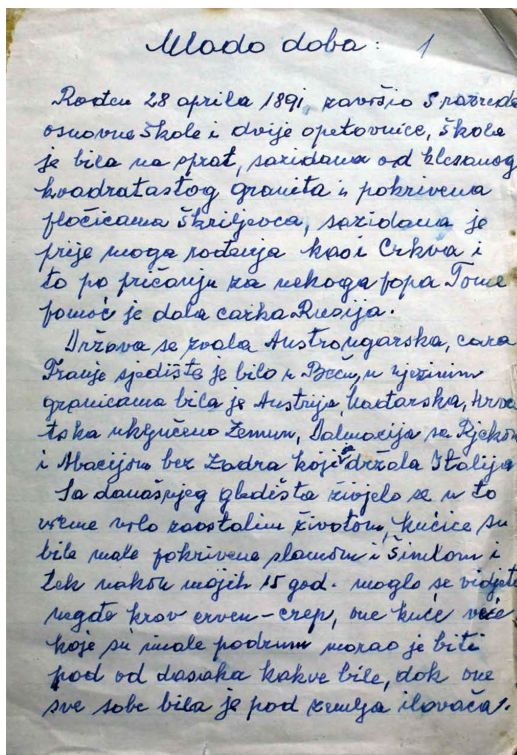 Mlado doba: 1
Rođen 28 aprila 1891, završio 5 razreda
osnovne škole i dvije opetovnice, škola
je bila na sprat, sazidana od klesanog
kvadratastog granita i pokrivena
pločicama škriljevca, sazidana je
prije moga rođenja kao i Crkva i
to po pričanju za nekoga popa Tome
pomoć je dala carka Rusija.
Država se zvala Austrougarska, cara
Franje sjedište je bilo u Beču, u njezinim
granicama bila je Austrija, Mađarska, Hrva
tska uključeno Zemun, Dalmacija sa Rjekom
i Abacijom bez Zadra koji je držala Italija
Sa današnjeg gledišta živjelo se u to
vreme vrlo zaostalim životom, kućice su
bile male pokrivene slamom i šimlom i
tek nakon mojih 15 god. moglo se vidjeti
negde krov crven-crep, one kuće veće
koje su imale podrum morao je biti
pod od dasaka kakve bile, dok one
sve sobe bila je pod zemlja ilovača.